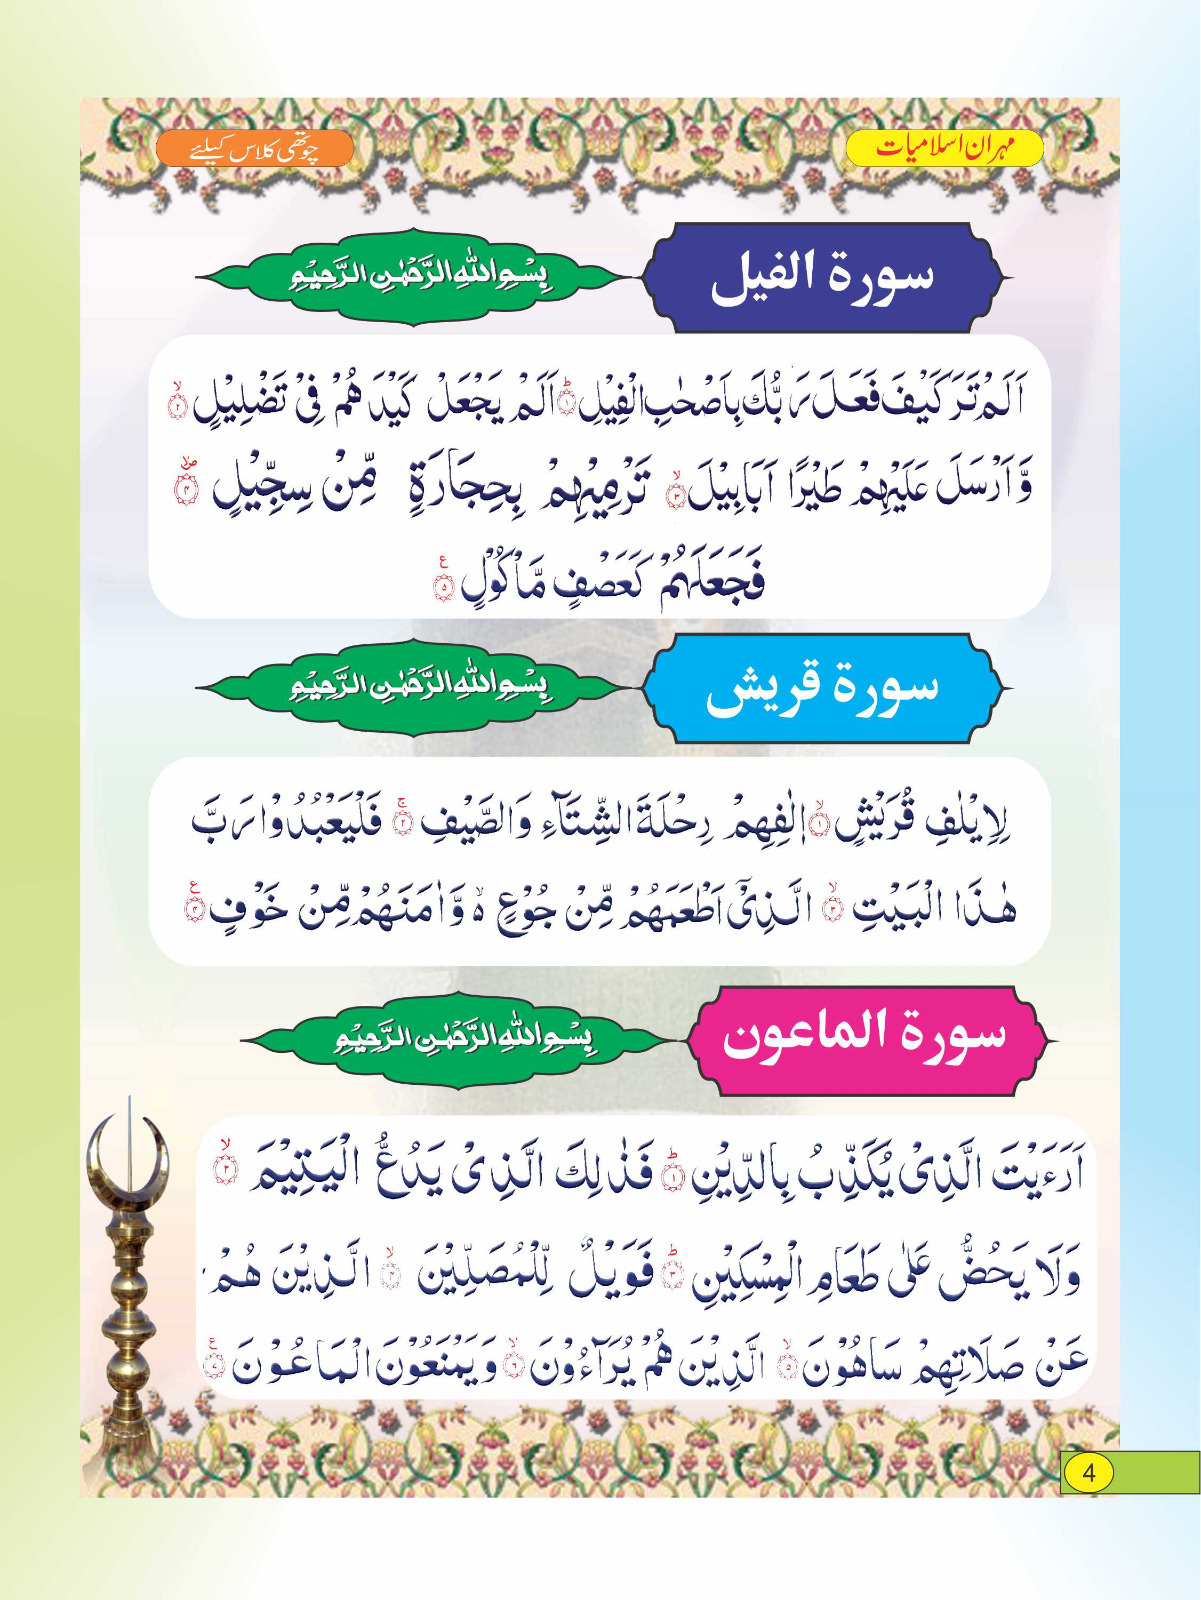 مہران اسلامیات
چوتھی کلاس کیلئے
سورة الفیل
بِسْمِ اللّٰهِ الرَّحْمٰنِ الرَّحِیْمِ
اَلَمْ تَرَ كَیْفَ فَعَلَ رَبُّكَ بِاَصْحٰبِ الْفِیْلِ ؕ۱ اَلَمْ یَجْعَلْ كَیْدَهُمْ فِیْ تَضْلِیْلٍ ۙ۲
وَّاَرْسَلَ عَلَیْهِمْ طَیْرًا اَبَابِیْلَ ۙ۳ تَرْمِیْهِمْ بِحِجَارَةٍ مِّنْ سِجِّیْلٍ ۪ۙ۴
فَجَعَلَهُمْ كَعَصْفٍ مَّاْكُوْلٍ ۵ ع
سورة قریش
بِسْمِ اللّٰهِ الرَّحْمٰنِ الرَّحِیْمِ
لِاِیْلٰفِ قُرَیْشٍ ۙ۱ اٖلٰفِهِمْ رِحْلَةَ الشِّتَآءِ وَالصَّیْفِ ۚ۲ فَلْیَعْبُدُوْا رَبَّ
هٰذَا الْبَیْتِ ۙ۳ الَّذِیْۤ اَطْعَمَهُمْ مِّنْ جُوْعٍ ۙ۬ وَّاٰمَنَهُمْ مِّنْ خَوْفٍ ۴ ع
سورة الماعون
بِسْمِ اللّٰهِ الرَّحْمٰنِ الرَّحِیْمِ
اَرَءَیْتَ الَّذِیْ یُكَذِّبُ بِالدِّیْنِ ؕ۱ فَذٰلِكَ الَّذِیْ یَدُعُّ الْیَتِیْمَ ۙ۲
وَلَا یَحُضُّ عَلٰی طَعَامِ الْمِسْكِیْنِ ؕ۳ فَوَیْلٌ لِّلْمُصَلِّیْنَ ۙ۴ الَّذِیْنَ هُمْ
عَنْ صَلَاتِهِمْ سَاهُوْنَ ۙ۵ الَّذِیْنَ هُمْ یُرَآءُوْنَ ۙ۶ وَیَمْنَعُوْنَ الْمَاعُوْنَ ۷ ع
4